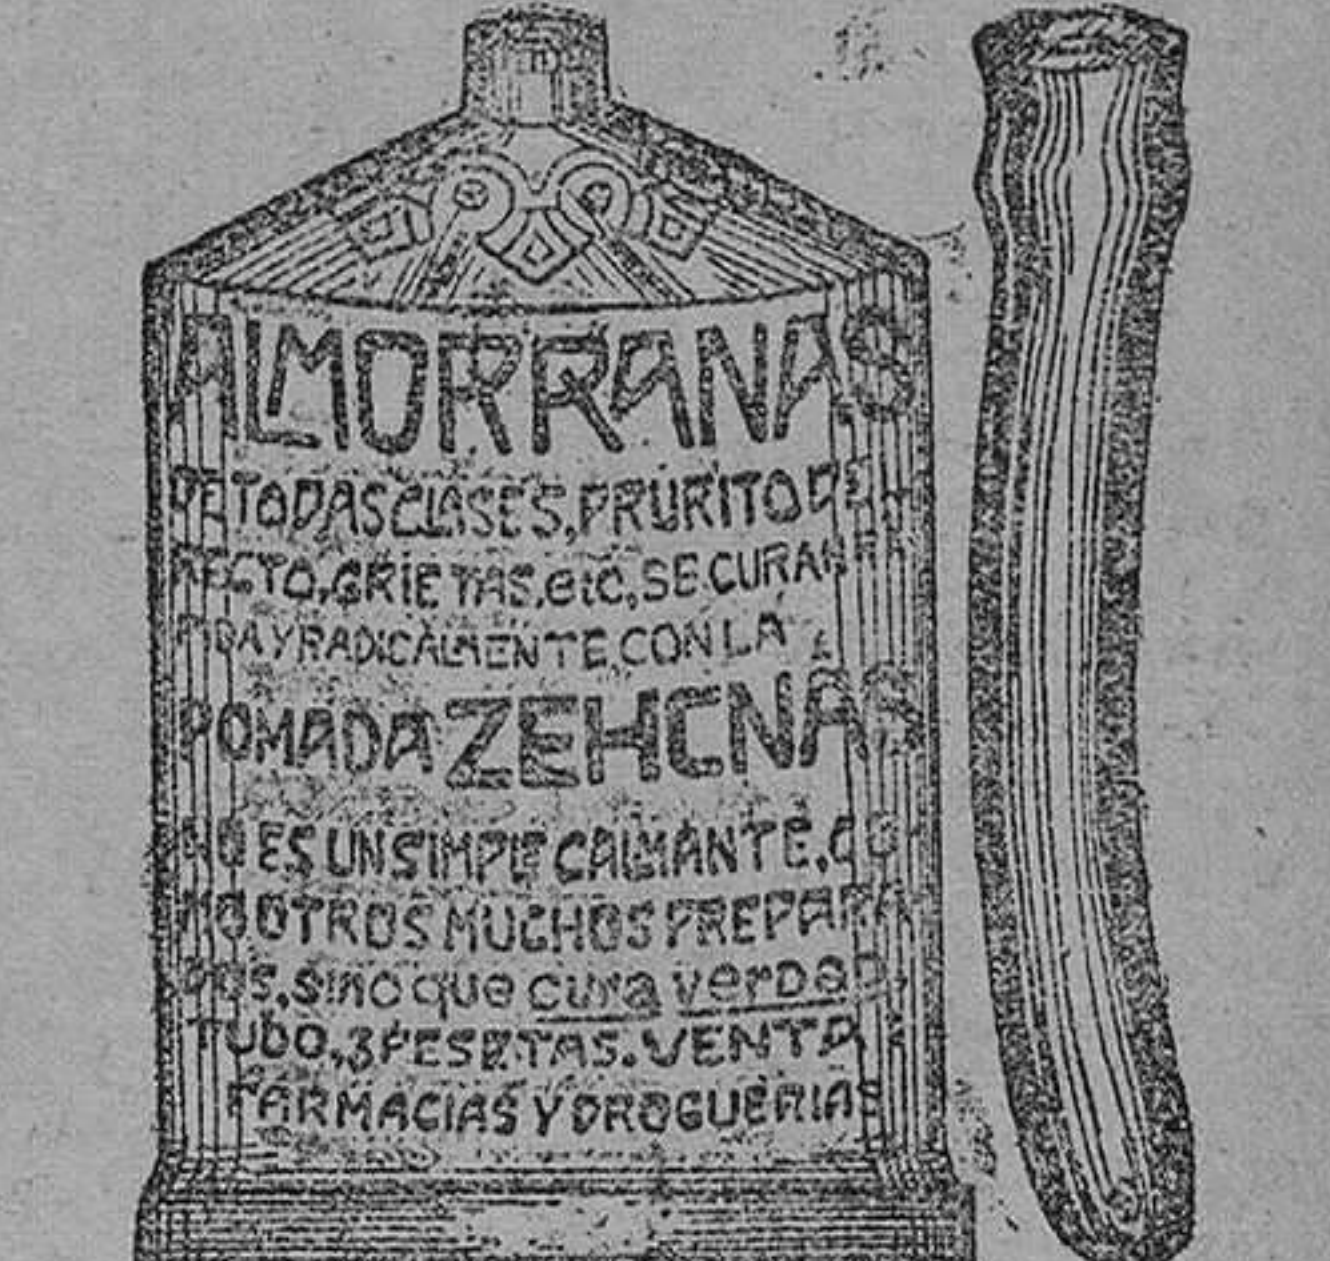 ALMORRANAS
DE TODAS CLASES, PRURITO DE
RECTO, GRIETAS, etc, SE CURAN RA
PIDA Y RADICALMENTE, CON LA
POMADA ZEHCNAS
NO ES UN SIMPLE CALMANTE, CO
MO OTROS MUCHOS PREPARA
DOS, sino que cura verdad.
TUBO, 3 PESETAS. VENTA
FARMACIAS Y DROGUERIAS